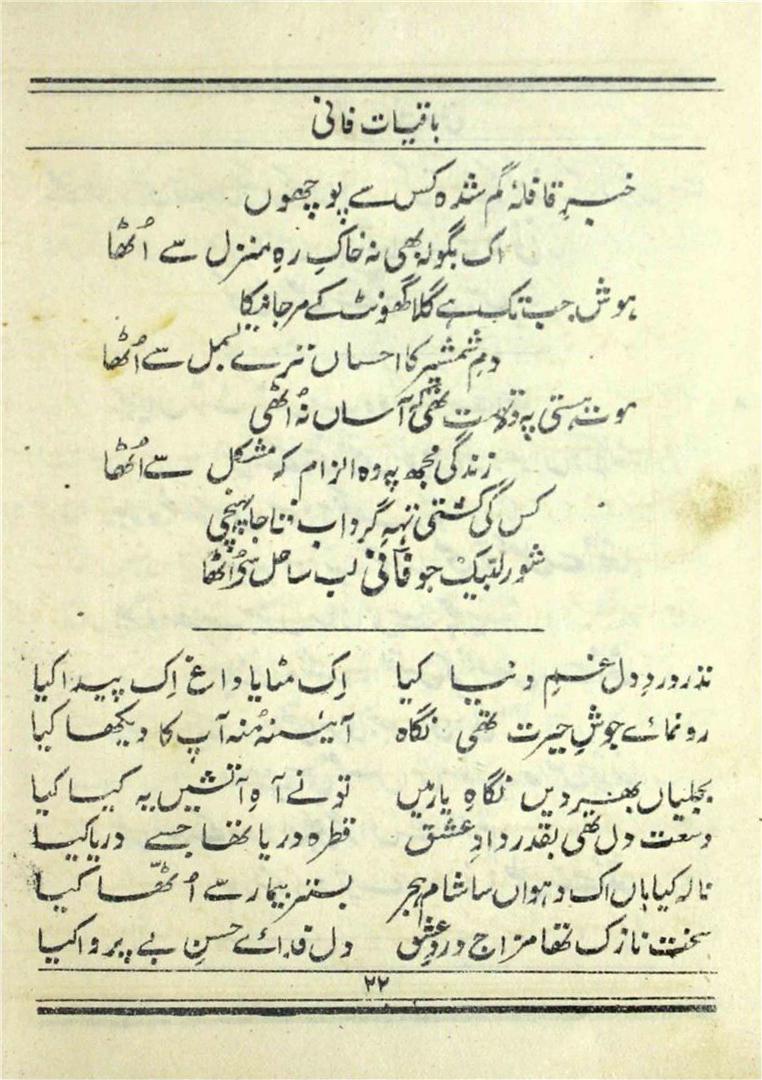 باقیات فانی
خبرِ قافلۂ گم شدہ کس سے پوچھوں
اک بگولہ بھی نہ خاکِ رہِ منزل سے اُٹھا
ہوش جب تک ہے گلا گھونٹ کے مرجانیکا
دمِ شمشیر کا احساں ترے بسمل سے اُٹھا
موت ہستی پہ وہ تہمت تھی کہ آساں نہ اُٹھی
زندگی مجھ پہ وہ الزام کہ مشکل سے اُٹھا
کس کی کشتی تہہِ گرداب فنا جا پہنچی
شور لبیک جو فانی لب ساحل سے اُٹھا
نذر دردِ دل غمِ دنیا کیا اِک مٹایا داغ اِک پیدا کیا
رونمائے جوشِ حیرت تھی نگاہ آئینہ مُنہ آپ کا دیکھا کیا
بجلیاں بھردیں نگاہِ یار میں تونے آہِ آتشیں یہ کیا کیا
وسعت دل تھی بقدر دادِ عشق قطرہ دریا تھا جسے دریا کیا
نالہ کیا ہاں اک دہواں سا شام ہجر بستر بیمار سے اُٹھا کیا
سخت نازک تھا مزاج دردِ عشق دل فدائے حسنِ بے پروا کیا
۲۲